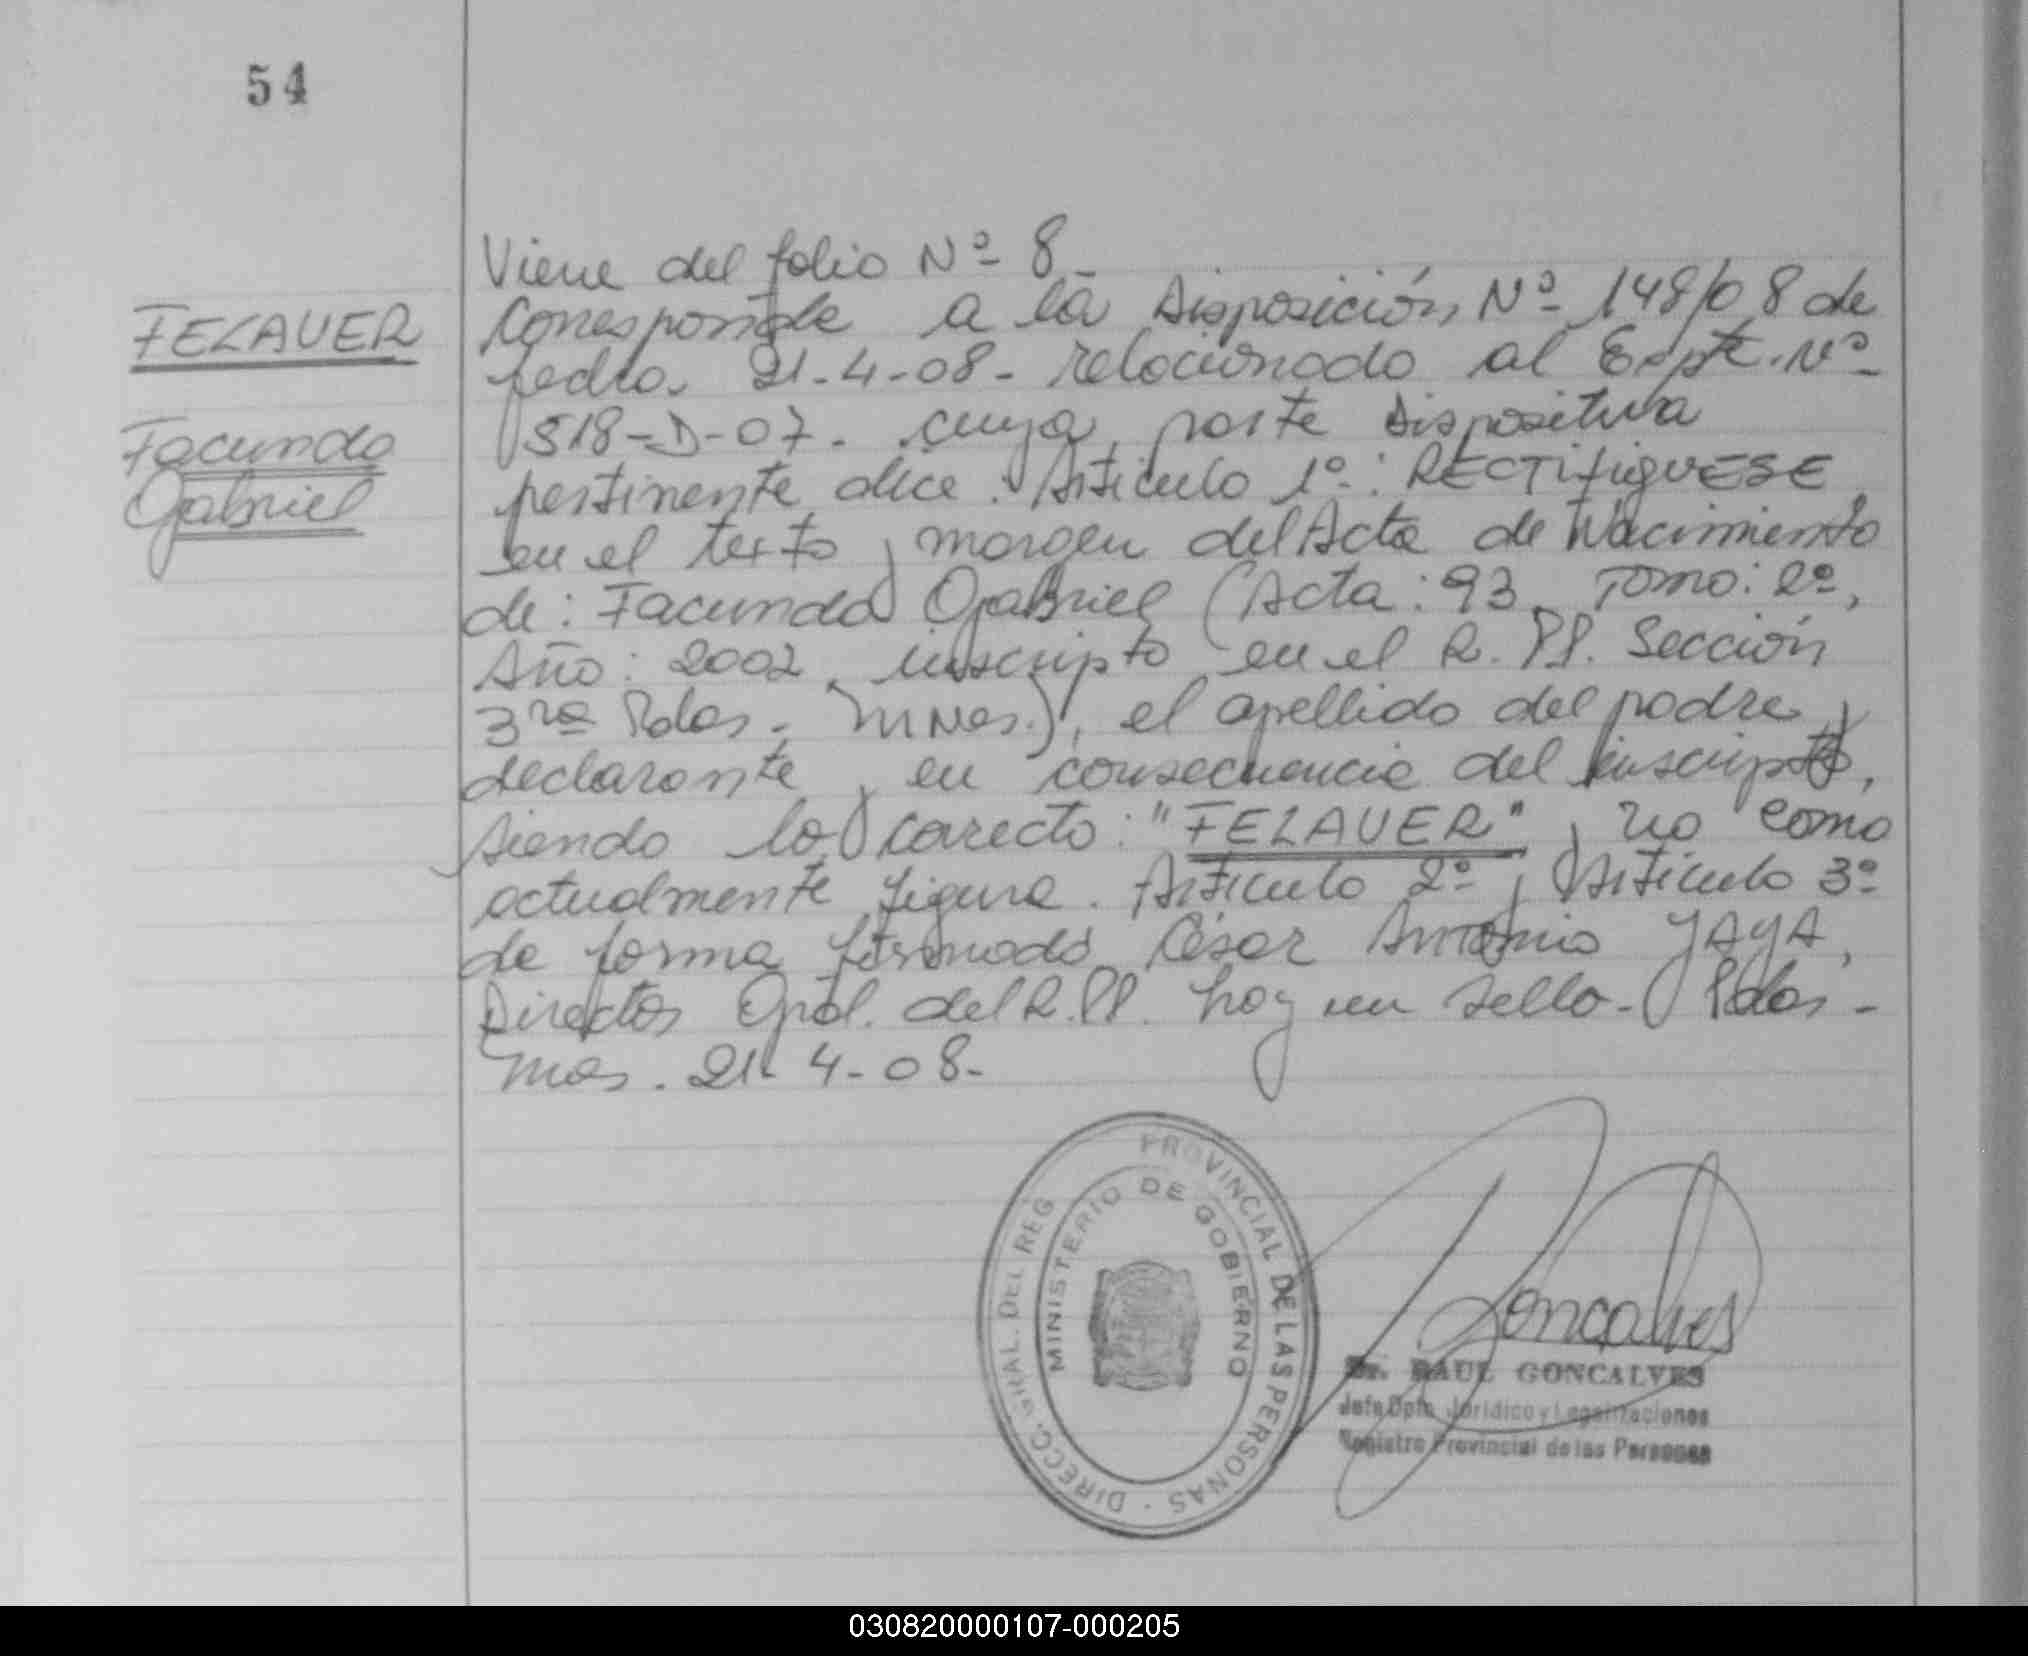 54
FELAUER
Facundo
Gabriel
Viene del folio Nº 8_
Corresponde a la Disposición Nº 148/08 de
fecha 21-4-08- relacionado al Expte. Nº
518-D-07. cuya parte dispositiva
pertinente dice: Articulo 1º: RECTIfiqUESE
en el texto y margen del Acta de Nacimiento
de: Facundo Gabriel (Acta: 93, Tomo: 2º,
Año: 2002, inscripto en el R.PP. Sección
3ra Pdas. Mnes.), el apellido del padre y
declarante y en consecuencia del inscripto,
siendo lo correcto: "FELAUER" y no como
actualmente figura. Articulo 2º y Articulo 3º
de forma firmado César Antonio YAYA,
Director Gral. del R.PP. hay un sello- Pdas-
Mnes. 21-4-08-
DIRECC. GRAL. DEL REG PROVINCIAL DE LAS PERSONAS
MINISTERIO DE GOBIERNO
Goncalves
Dr. RAUL GONCALVES
Jefe Dpto. Jurídico y Legalizaciones
Registro Provincial de las Personas
030820000107-000205